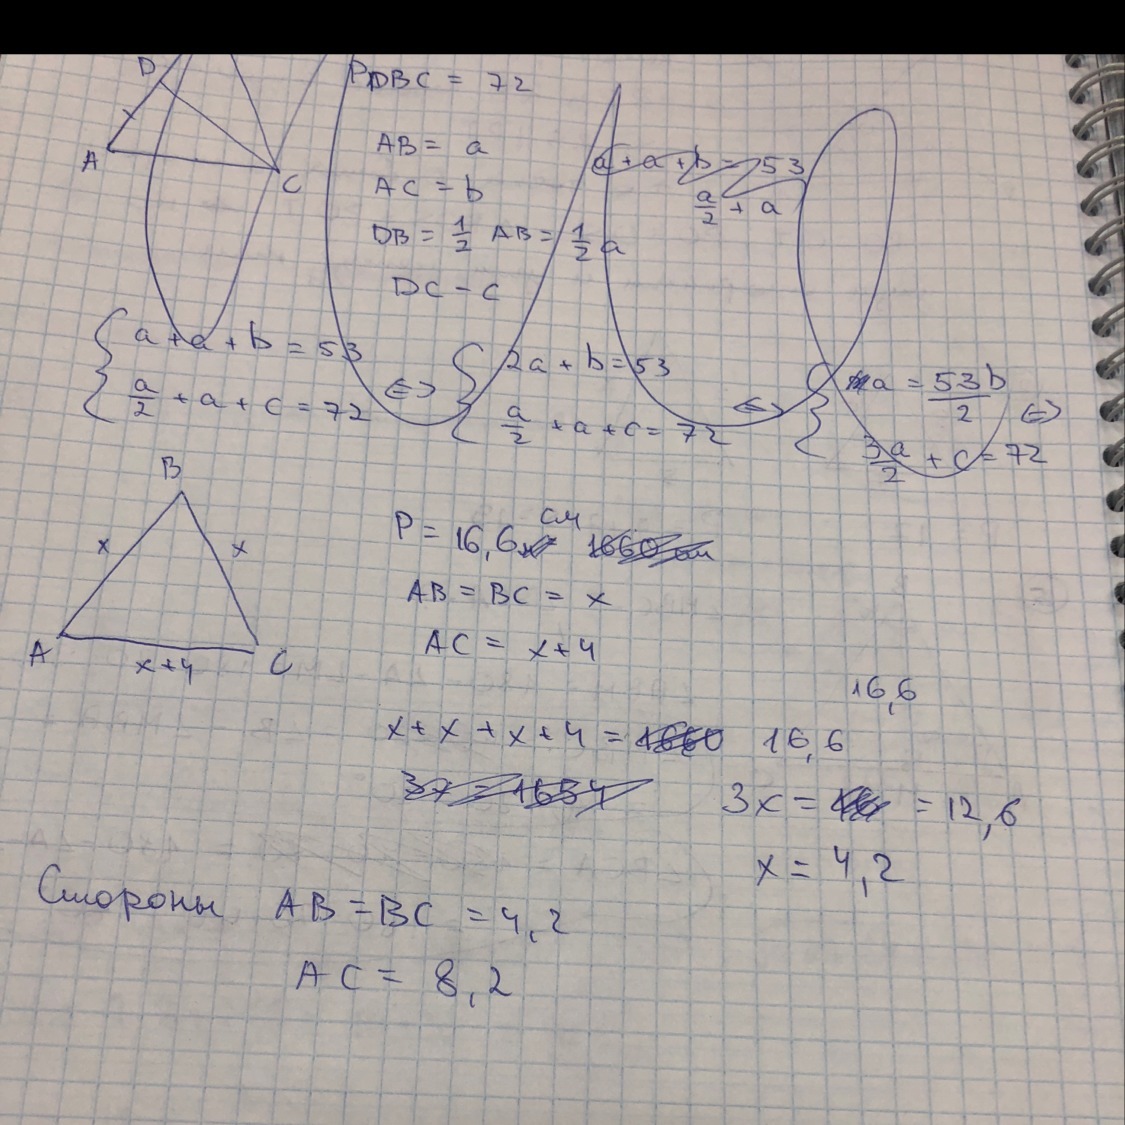 D
A
C
PDBC = 72
AB = a
AC = b
DB = 1/2 AB = 1/2 a
DC - c
a + a + b = 53
a/2 + a
{ a + a + b = 53
a/2 + a + c = 72
<=>
{ 2a + b = 53
a/2 + a + c = 72
<=>
{ a = 53b/2
3a/2 + c = 72
<=>
B
x
x
A
x+4
C
P = 16,6 см
1660 см
AB = BC = x
AC = x+4
16,6
x + x + x + 4 = 1660 16,6
3x = 1654
3x = = 12,6
x = 4,2
Стороны AB = BC = 4,2
AC = 8,2